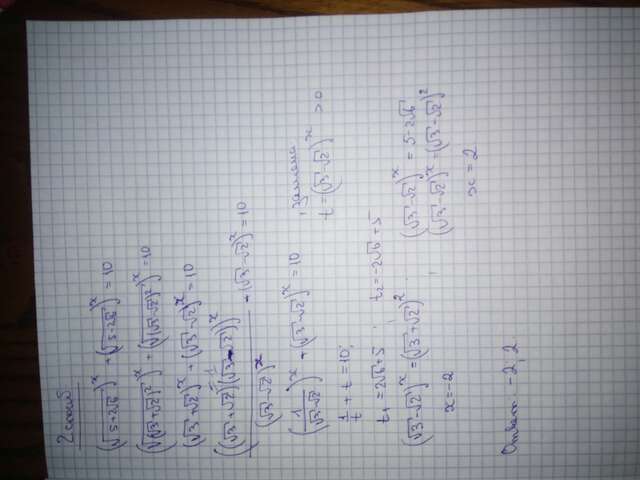 2 способ
(√5+2√6)^x + (√5-2√6)^x = 10
(√(√3+√2)²)^x + (√(√3-√2)²)^x = 10
(√3+√2)^x + (√3-√2)^x = 10
((√3+√2)(√3-√2))^x / (√3-√2)^x + (√3-√2)^x = 10
(1/(√3-√2))^x + (√3-√2)^x = 10 , замена
t = (√3-√2)^x > 0
1/t + t = 10;
t₁ = 2√6+5 ; t₂ = -2√6+5
(√3-√2)^x = (√3+√2)²
x = -2
(√3-√2)^x = 5-2√6
(√3-√2)^x = (√3-√2)²
x = 2
Ответ: -2; 2